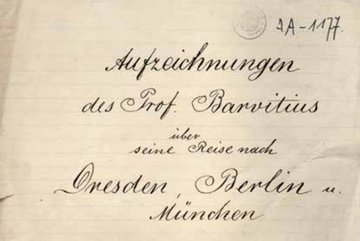 AA-1177.
Aufzeichnungen
des Prof. Barvitius
über
seine Reise nach
Dresden, Berlin u.
München